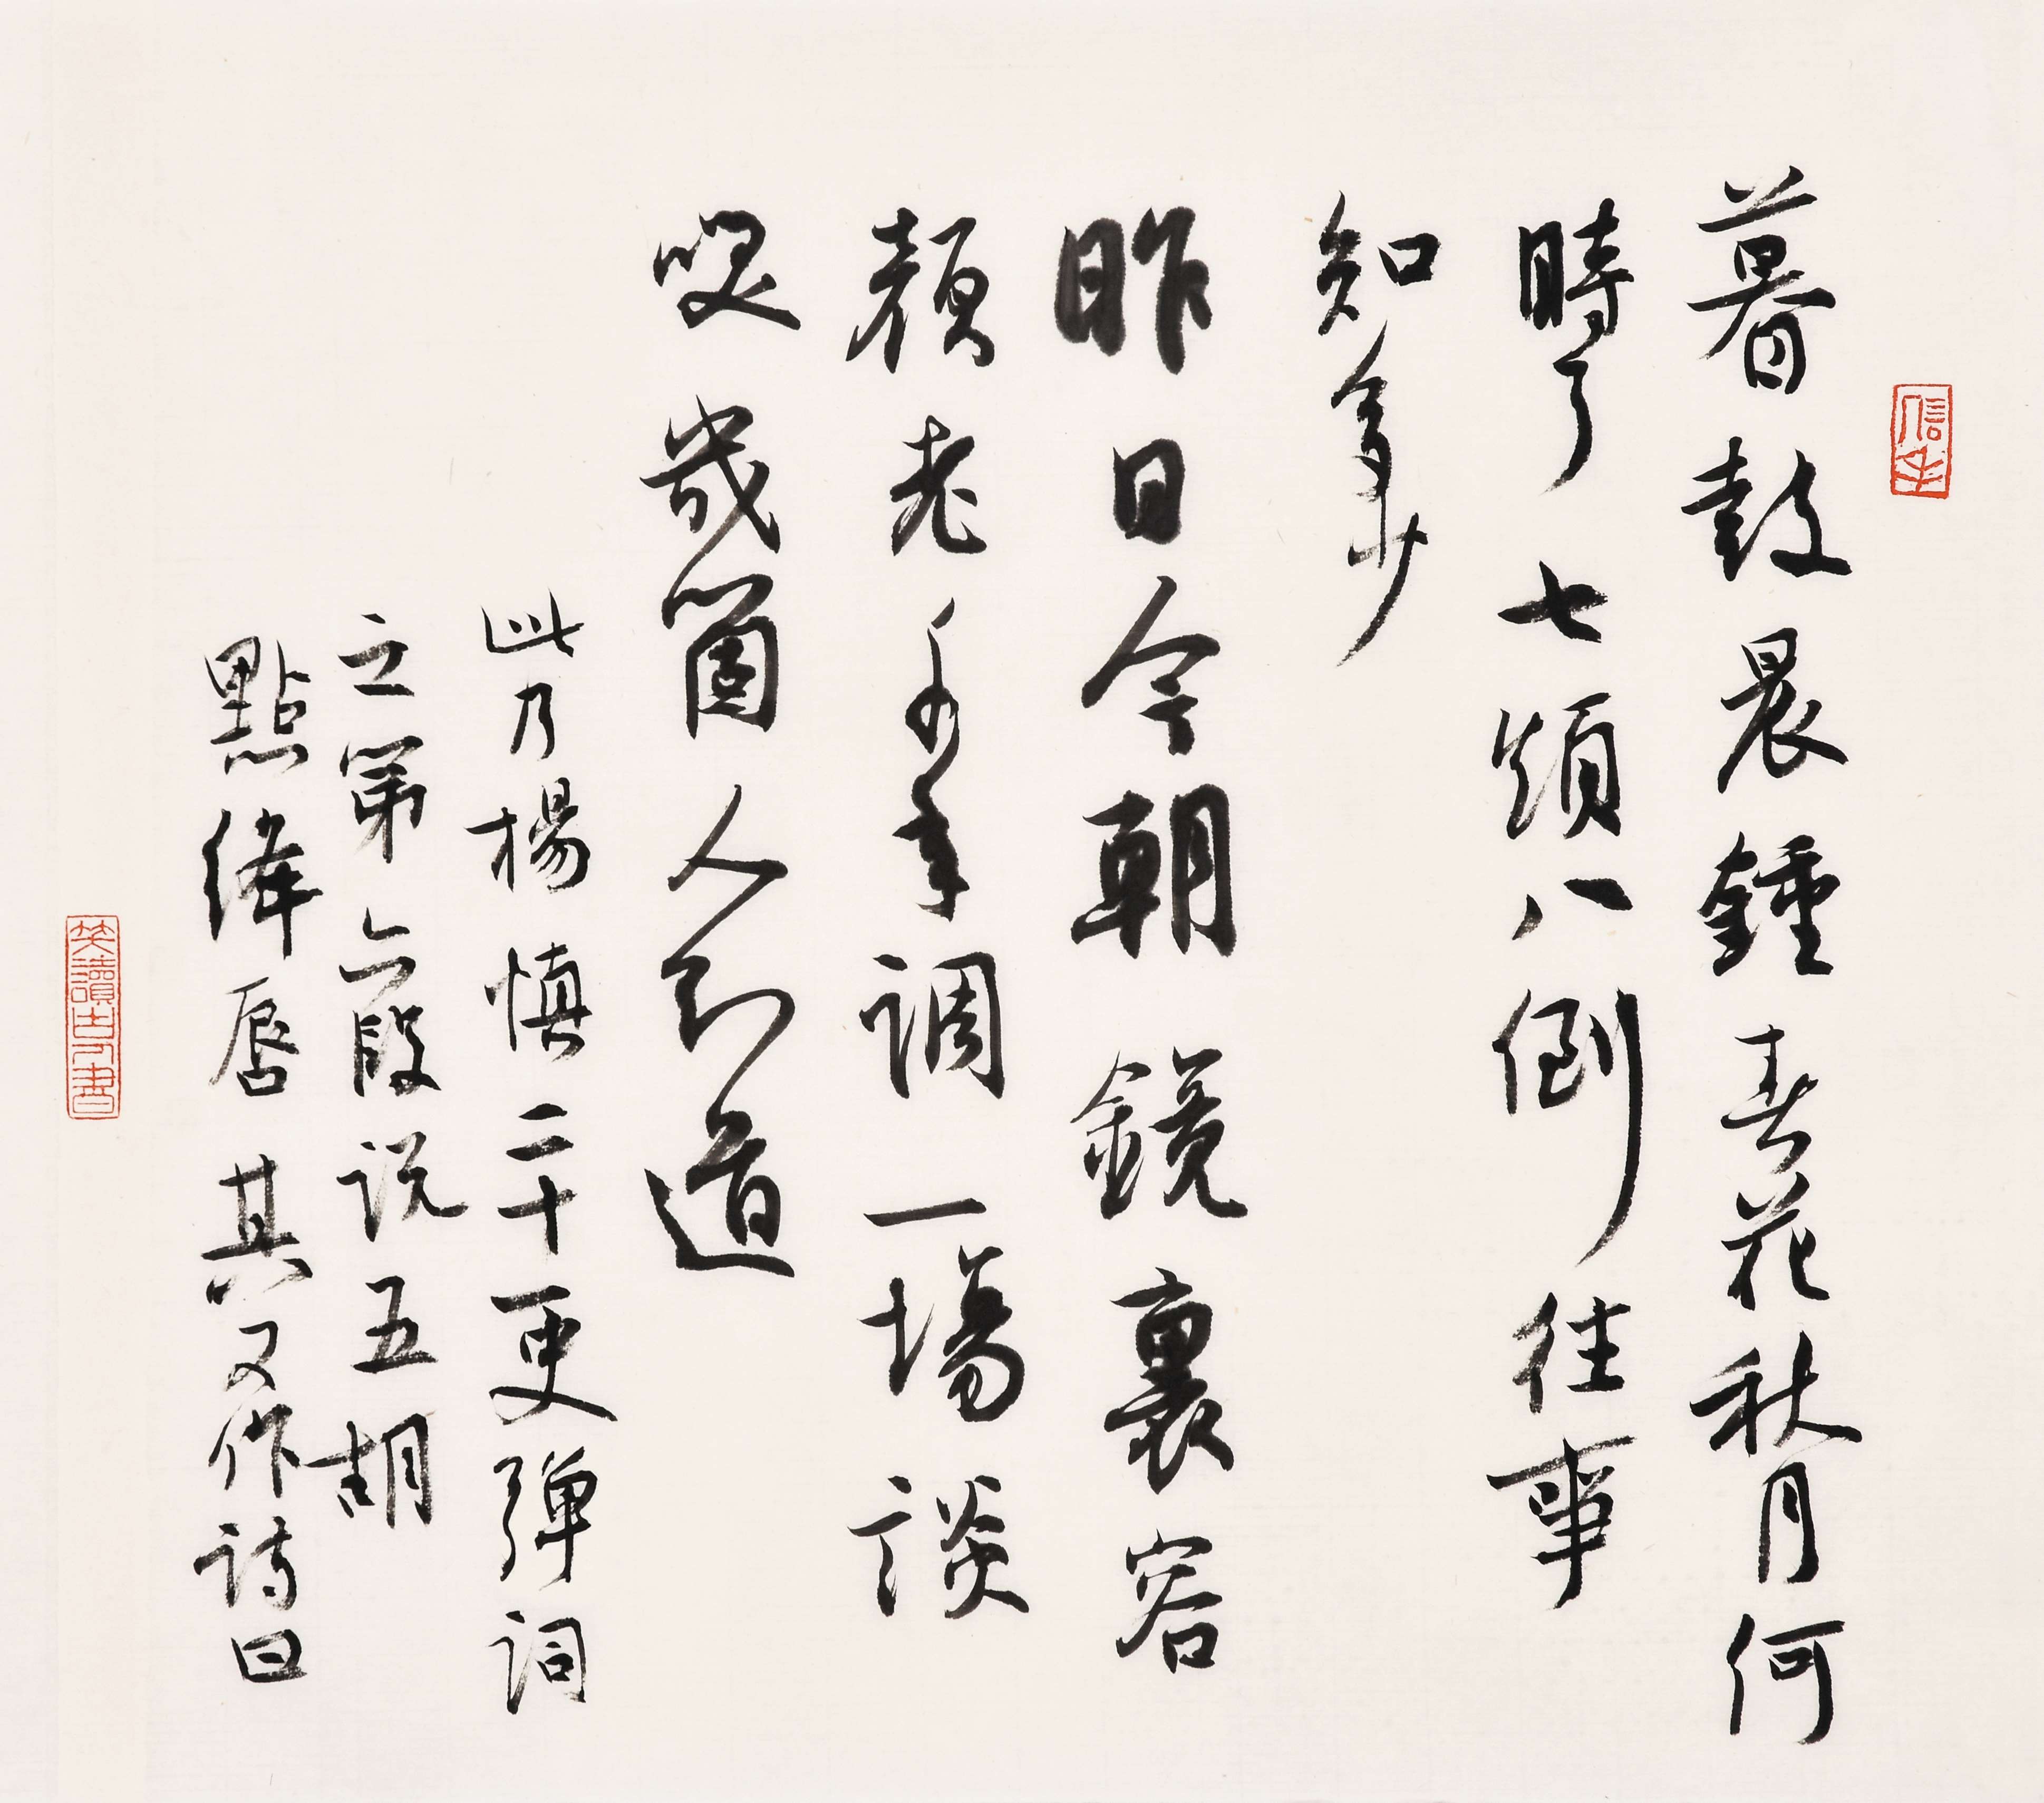 暮鼓晨鍾春花秋月何
時了七顛八倒往事
知多少
昨日今朝鏡裏容
顏老千年調一場談
咲幾箇人知道
此乃楊慎二十一史弹詞
之第六段说五胡
點絳唇其又作詩曰